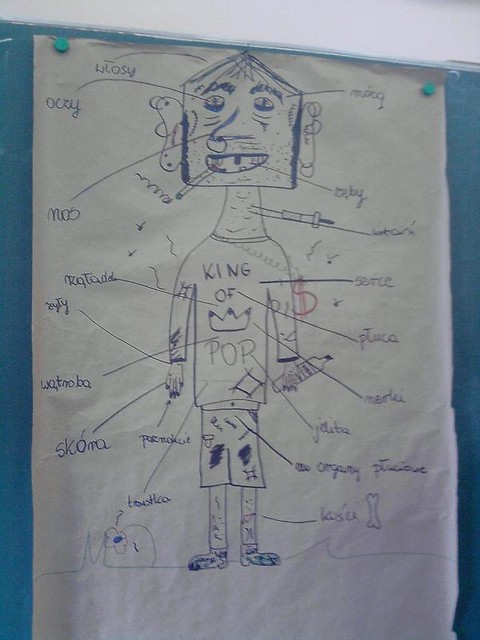 włosy
oczy
mózg
nos
zęby
serce
KING
OF
POP
żyły
płuca
wątroba
nerki
skóra
jelita
paznokcie
trzustka
organy płciowe
kości